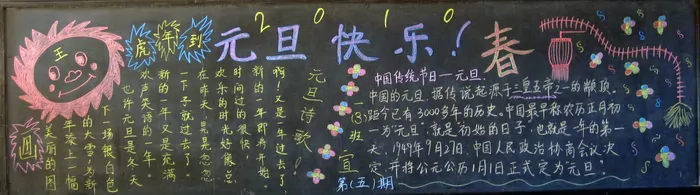 2010
虎年到
元旦快乐!
春
王
元旦诗歌!
啊!又是一年过去了
新的一年即将开始
时间过的很快,
欢乐的时光好像点
在昨天,晃晃忽忽
一下子就过去了。
新的一年又是充满
欢声笑语的一年
也许元旦是冬天
下一场银白色
的大雪为新
年添上一幅
美丽的图
一(3)班 宣
第(五)期
中国传统节日—元旦.
中国的元旦,据传说起源于三皇五帝之一的颛顼,
距今已有3000多年的历史。中国最早称农历正月初
一为"元旦",就是初始的日子,也就是一年的第一
天,1949年9月27日,中国人民政治协商会议决
定,并将公元公历1月1日正式定为元旦。